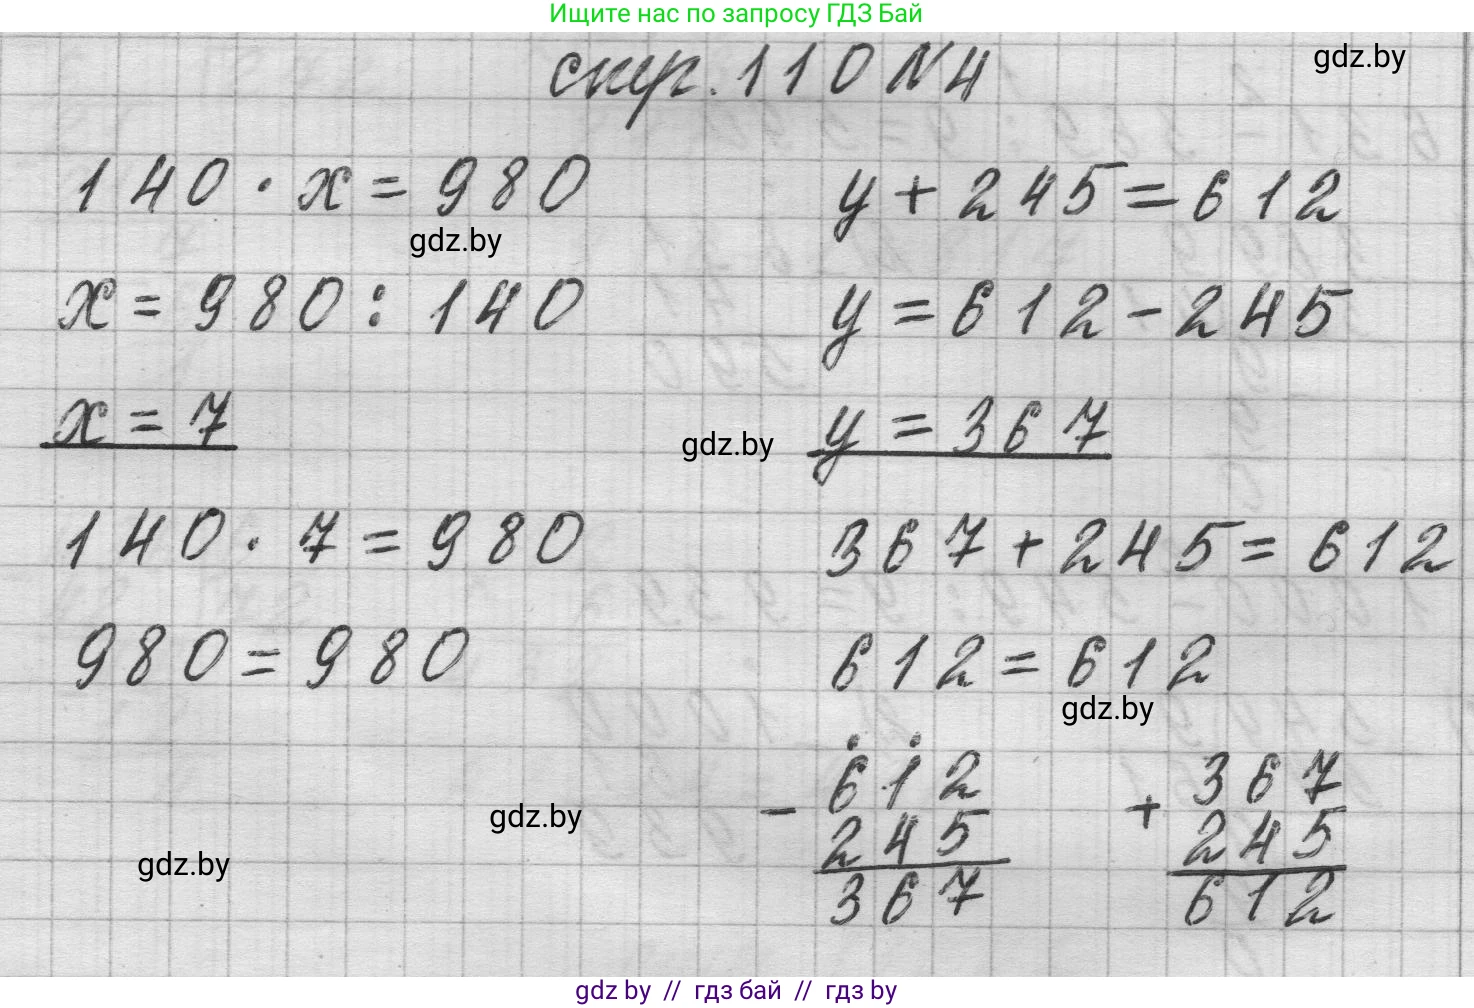 Ищите нас по запросу ГДЗ Бай
стр. 110 №4
gdz.by
140 · x = 980
y + 245 = 612
gdz.by
x = 980 : 140
y = 612 - 245
x = 7
y = 367
gdz.by
140 · 7 = 980
367 + 245 = 612
980 = 980
612 = 612
gdz.by
- 612
245
367
+ 367
245
612
gdz.by
gdz.by
gdz by // гдз бай // gdz by